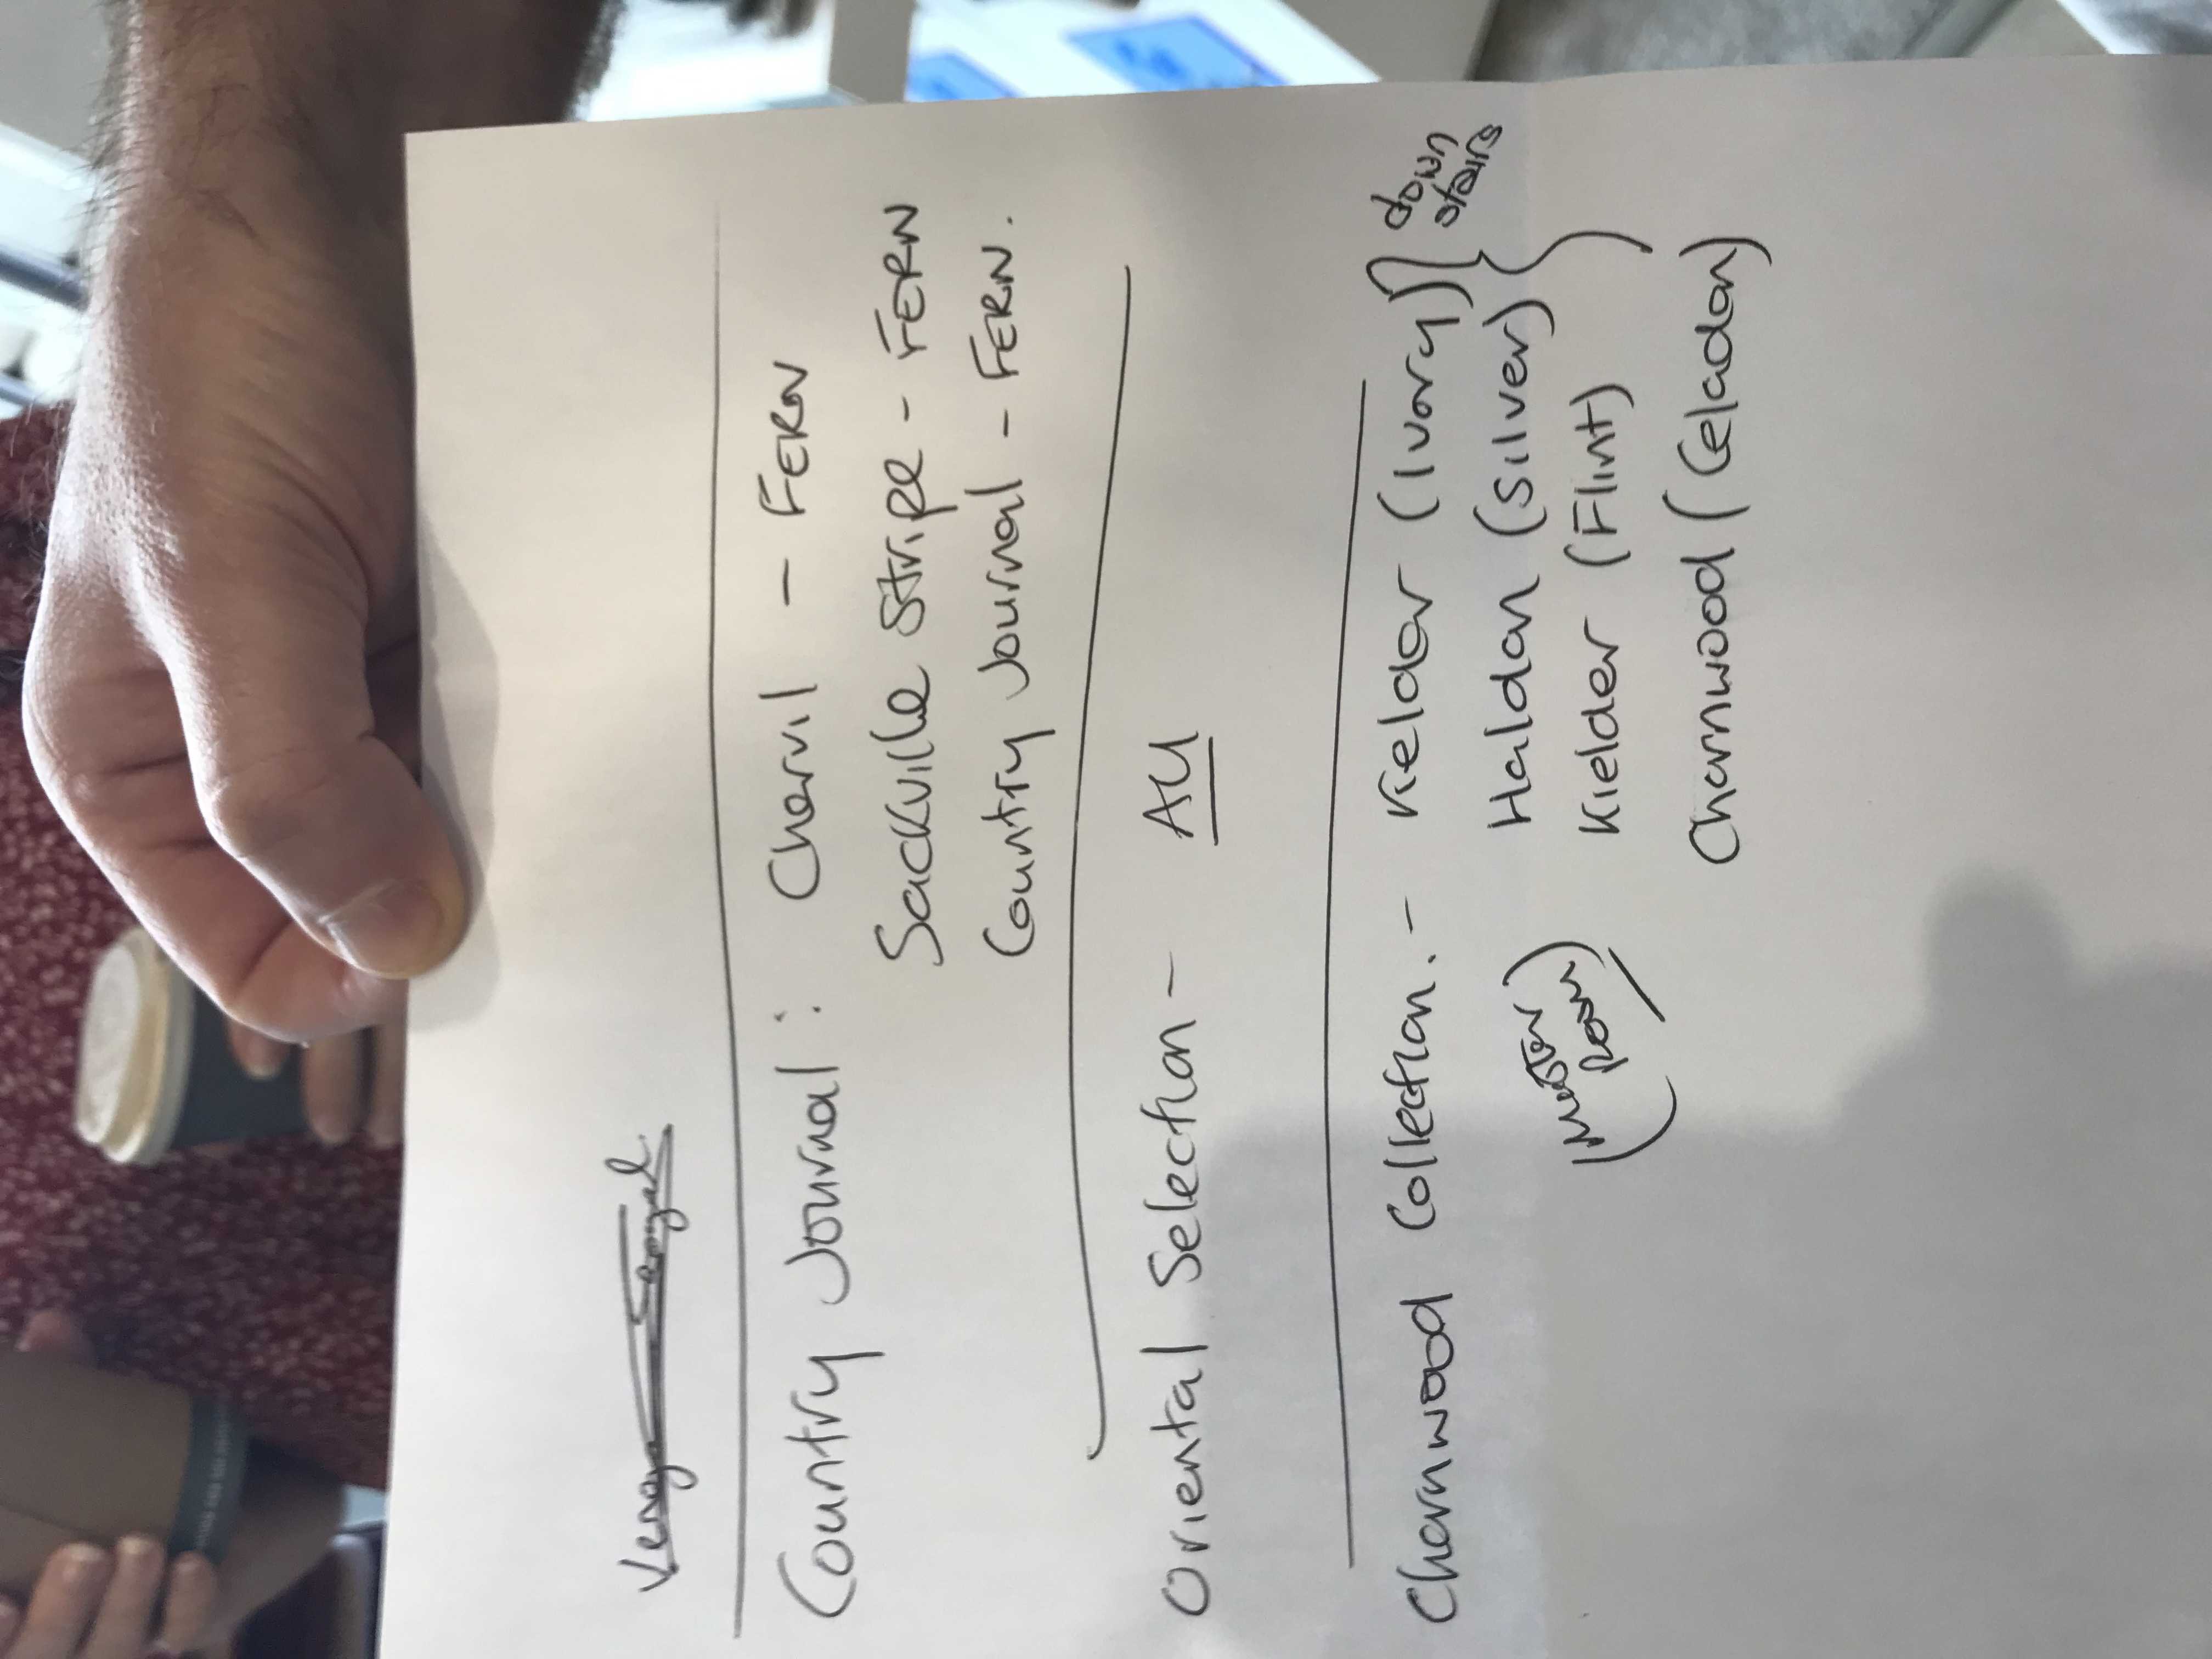 Country Journal: Chervil - FERN
Sackville Stripe - FERN
Country Journal - FERN.
Oriental Selection - All
Charnwood Collection. - Kielder (Ivory) down
stairs
Haldon (Silver)
(Master
Room)
Kielder (Flint)
Charnwood (Celadon)